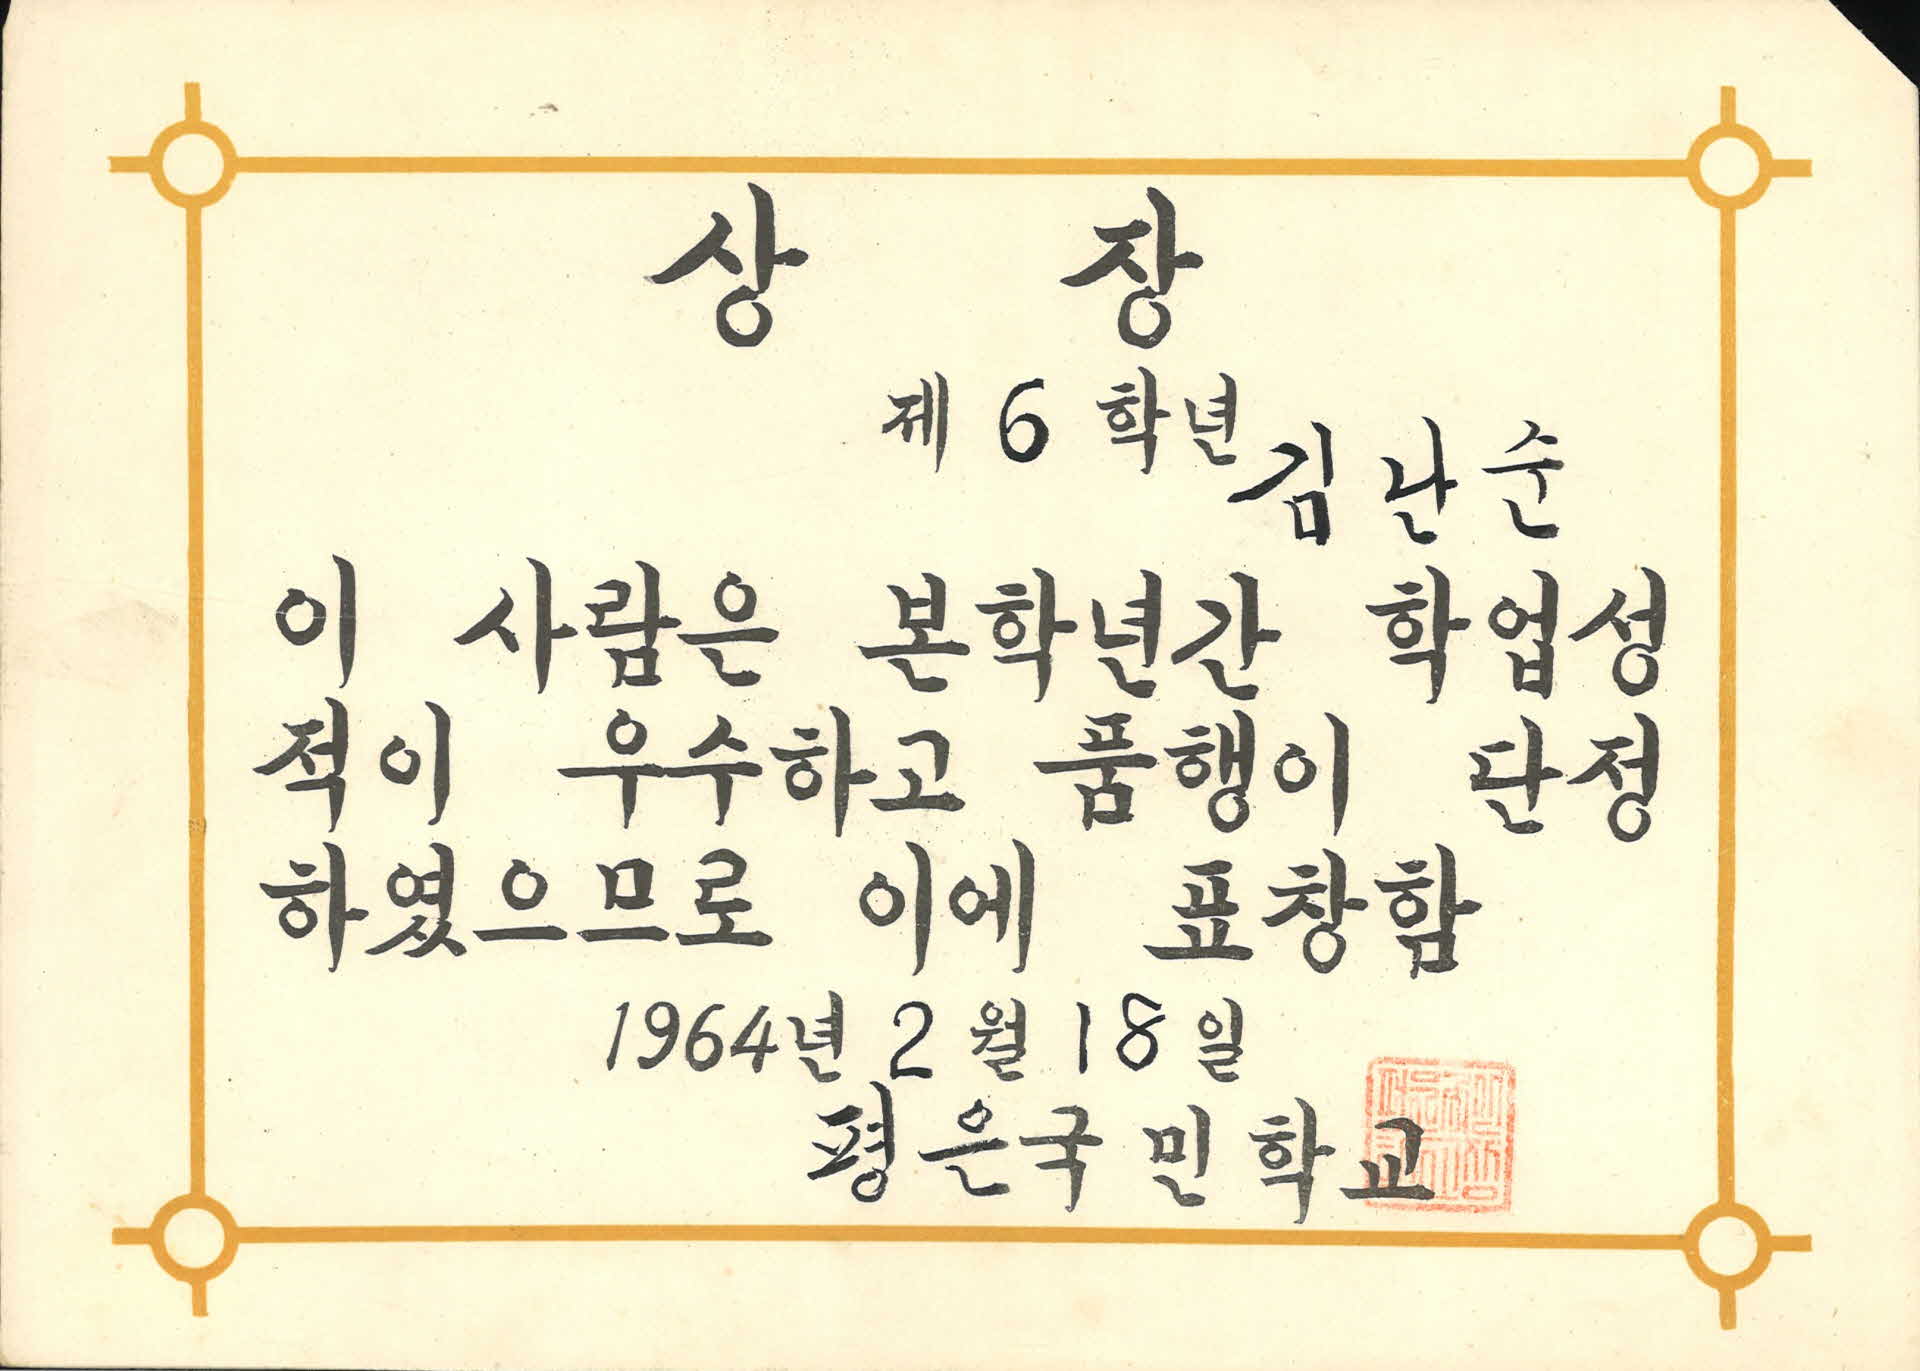 상 장
제 6 학년
김난순
이 사람은 본학년간 학업성
적이 우수하고 품행이 단정
하였으므로 이에 표창함
1964년 2월 18일
평은국민학교